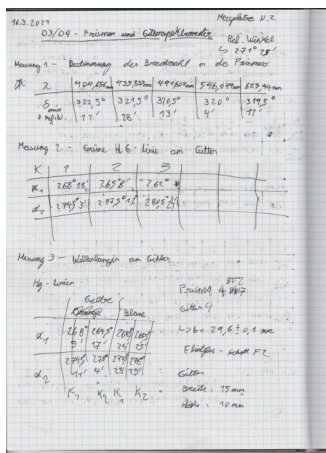 16.3.2021
Messplatz N.2
03/04 - Prismen und Gitterspektrometer
Ref. Winkel
↳ 271° 28'
Messung 1 - Bestimmung des Brechzahl n des Prismas
λ | 404,656nm | 435,83nm | 491,60nm | 546,07nm | 607,nm
δ min | 322,5° | 321,5° | 320,5° | 320° | 319,5°
+ ref.w. | 17' | 28' | 13' | 4' | 17'
Messung 2 - Grüne H.G - Linie am Gitter
K | 1 | 2 | 3
α₁ | 268° 18' | 265° 8' | 262°
α₂ | 274,5° 3' | 277,5° 12' | 280,5°
Messung 3 - Wellenlängen am Gitter
Hg - Linien
Gelbe | Blaue
α₁ | 268° | 264,5° | 268,5° | 266°
5' | 17' | 24' | 25'
α₂ | 274,5° | 278° | 274° | 276°
11' | 4' | 29' | 25'
K₁ K₂ K₁ K₂
Prisma 4
Gitter 4
↳ b = 29,6 ± 0,1 mm
- Schott F2
Gitter
Breite : 15 mm
Höhe : 10 mm